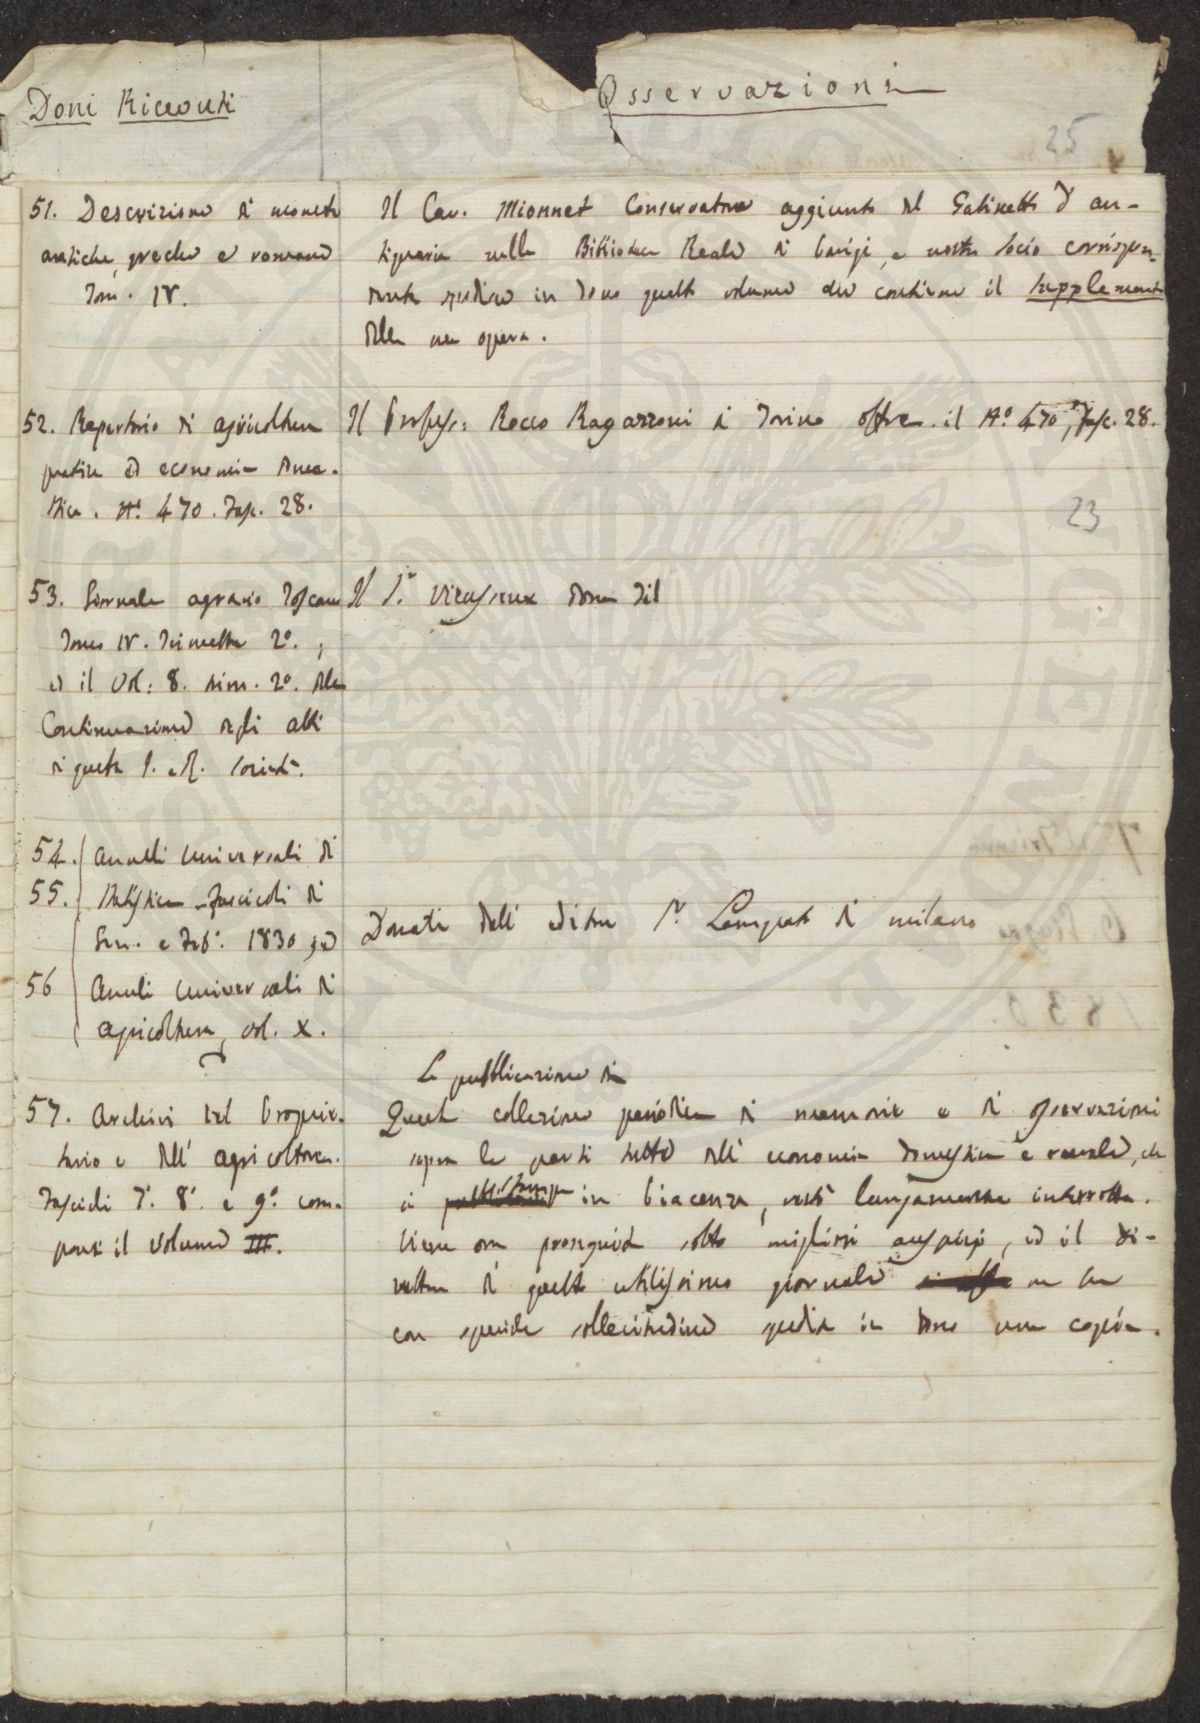 Doni Ricevuti
Osservazioni
25
51. Descrizione di monete
antiche, greche e romane
Tom. IV.
Il Cav. Mionnet Conservatore aggiunto del Gabinetto d'an-
tiquaria nella Biblioteca Reale di Parigi, e nostro Socio corrispon-
dente spedisce in dono questo volume che contiene il Supplemento
della sua opera.
52. Repertorio di agricoltura
pratica ed economia dome-
stica. N.º 470. Fasc. 28.
Il Profess: Rocco Ragazzoni di Torino offre il Nº 470, Fasc. 28.
23
53. Giornale agrario Toscano
Tomo IV. Trimestre 2º. ;
ed il Vol: 8. trim. 2º. della
Continuazione degli atti
di questa I. e R. Società.
Il S.r Vieusseux dona
54. Annali universali di
55. Statistica Fascicoli di
Gen. e Feb. 1830 ed
56 Annali universali di
agricoltura, vol. X.
Donati dall' editore S.r Lampato di Milano
57. Archivi del Proprie-
tario e dell' agricoltore.
Fascicoli 7. 8. e 9. com-
ponenti il Volume III.
La pubblicazione di
Questa collezione periodica di memorie e di osservazioni
sopra le parti tutte dell' economia domestica e rurale, che
si in Piacenza, restò lungamente interrotta.
Viene ora proseguita sotto migliori auspici, ed il di-
rettore di questo utilissimo giornale ne ha
con speciale sollecitudine spedita in dono una copia.